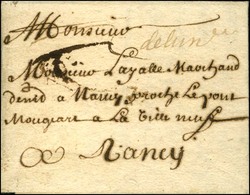 A Monsieur
delun
A Monsieur Layalle Marchand
demᵗ a Nancy proche Le pont
Mougeart a La Ville neuf
a Nancy